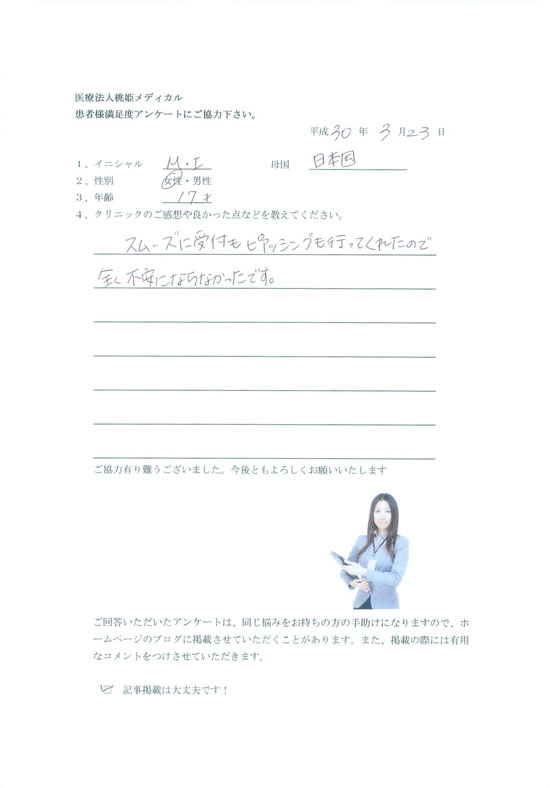 医療法人桃姫メディカル
患者様満足度アンケートにご協力下さい。
平成30年 3月23日
1、イニシャル M・I 母国 日本国
2、性別 女性・男性
3、年齢 17才
4、クリニックのご感想や良かった点などを教えてください。
スムーズに受付もピアッシングも行ってくれたので
全く不安にならなかったです。
ご協力有り難うございました。今後ともよろしくお願いいたします
ご回答いただいたアンケートは、同じ悩みをお持ちの方の手助けになりますので、ホ
ームページのブログに掲載させていただくことがあります。また、掲載の際には有用
なコメントをつけさせていただきます。
☑ 記事掲載は大丈夫です！